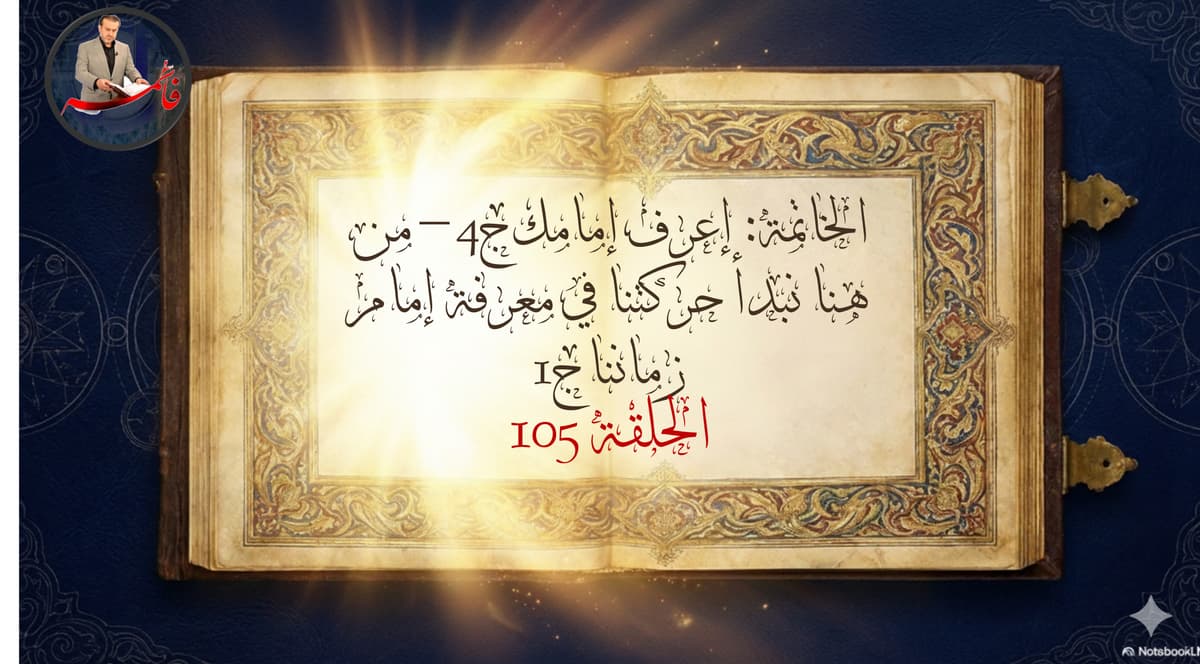 فاطمة
الخاتمة: إعرف إمامك ج4 – من
هنا نبدأ حركتنا في معرفة إمام
زماننا ج1
الحلقة 105